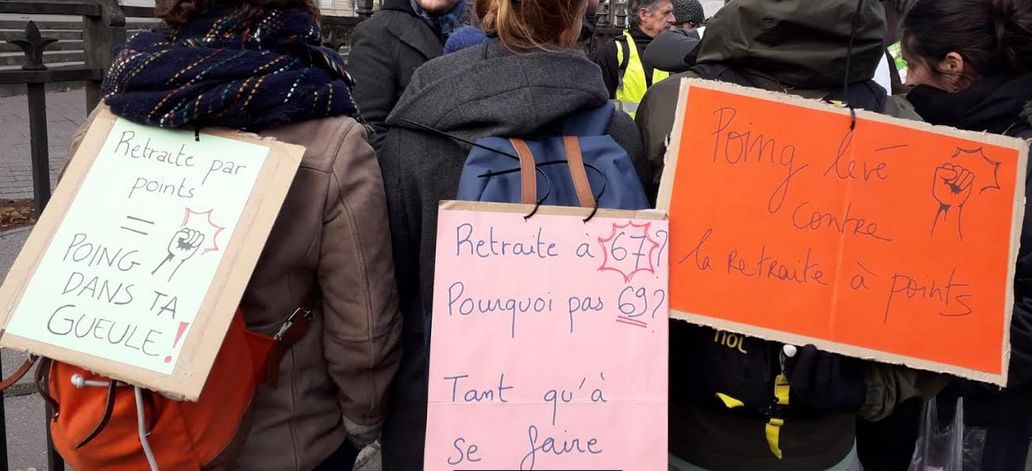 Retraite par
points
=
POING
DANS TA
GUEULE!
Retraite à 67?
Pourquoi pas 69?
Tant qu'à
se faire
Poing levé
contre
la retraite à points